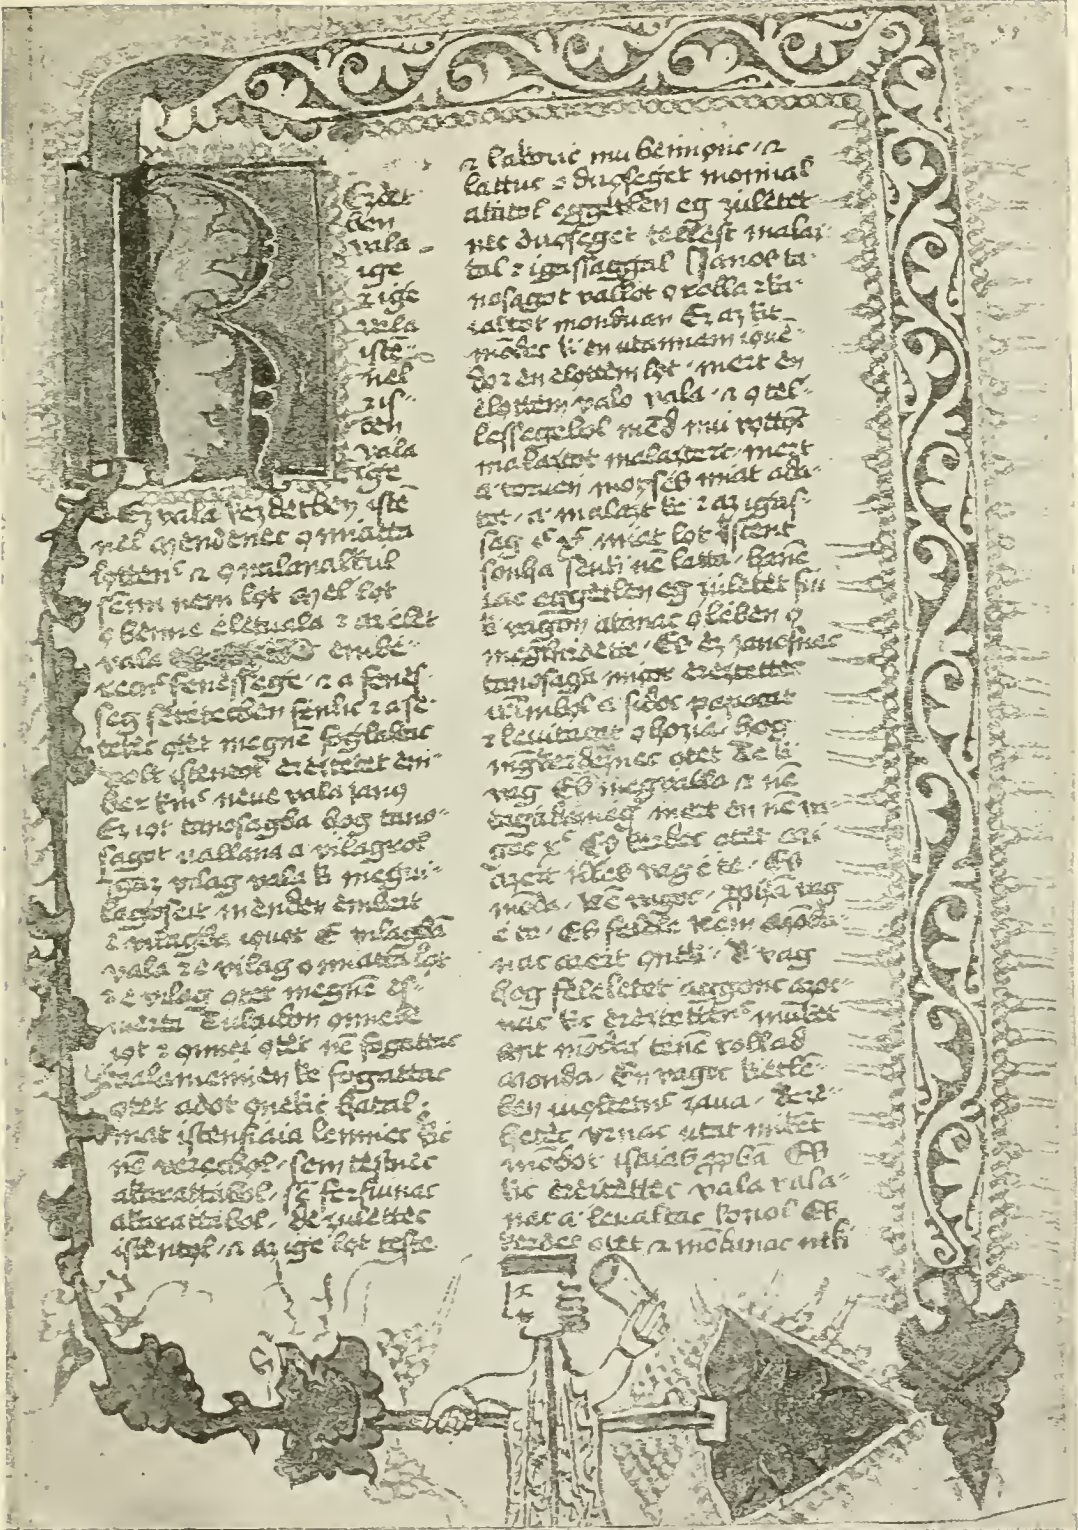 K
Ezdet
ben
vala
ige
ꝛ ige
vala
istē-
nel
ꝛ is-
ten
vala
ige
Ez vala kezdetben istē
nel Mendenec o miatta
lottenc ꝛ o nalanalkul
semi nem lot Mel lot
o benne elet vala ꝛ az elet
vala embė-
recnc fenessege ꝛ a fenes-
seg setetecben fenlic ꝛ a se-
tetec otet megnē foglaltac
volt istentol ereztetet em-
ber kinc neue vala janos
Ez iot tanosagba hog tano-
sagot uallana a vilagrol
igaz vilag vala ki megui-
lagoseit menden embert
e vilagba iouot E vilagbā
vala ꝛ e vilag o miatta lot
ꝛ e vilag otet megnē es-
merte Tulaidon
iot ꝛ ouuei otet nē fogattac
valamenien ke fogattac
otet adot onekic hatal-
mat istenfiaia lenniec kic
nē verecbol sem testnec
akarattabol sē ferfiunac
akarattabol de zulettec
istentol ꝛ az ige lot testė
ꝛ lakozic mu bennonc ꝛ
lattuc o dusseget monnal
atiatol eggetlen eg zuletet
nec dusseget tellest malaz-
tal ꝛ igassaggal Janos ta-
nosagot vallot o rolla ꝛ
monduan Ez az kit
mōdec ki en utannam iouē-
do ꝛ en elottem lot mert en
elottem valo vala ꝛ o tel-
lessegebol mēd mu vottōc
malaztot malaztert mert
a toruen moyses miat ada-
tot a malazt ke ꝛ az igas-
sag miat lot istent
sonha senki nē latta hanē
eggetlen eg zuletet fiu
ki vagon atianac o keben o
Es ez janosnac
tanosaga micor eresztettec
ilrmbol a sidoc papocat
ꝛ leuitacat o hozia hog
megkerdeznec otet Te ki
vag Es megvalla ꝛ nē
mert en nē va-
goc Es kerdec otet mi
azert illies vag e te Es
mōda Nē vagoc vag
e te Es felele nem
nac azert oneki Ki vag
hog feleletet aggonc azoc-
nac kic eresztettenc munket
mit mōdaz tennē rollad
Monda En vagoc ketle-
ben
vrnac utat mikēt
mōdot isaias Es
kic ereztettec vala vala-
nac a leualtac kozol Es
kerdec otet ꝛ mōdanac neki